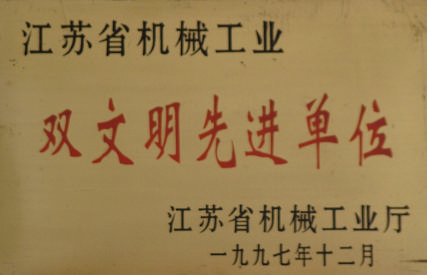 江苏省机械工业
双文明先进单位
江苏省机械工业厅
一九九七年十二月